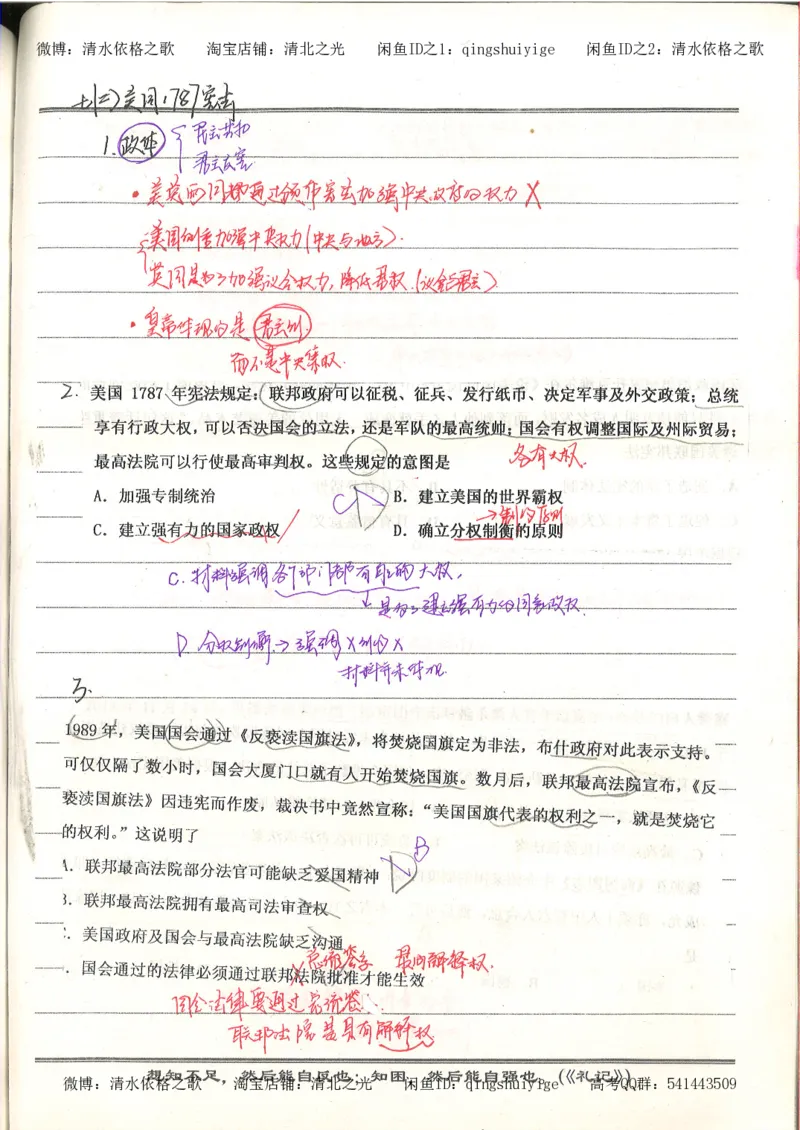 微博：清水依格之歌 淘宝店铺：清北之光 闲鱼ID之1：qingshuiyige 闲鱼ID之2：清水依格之歌
十(二)美国1787宪法
1.政体 君主共和
君主立宪
·美英两国都通过颁布宪法加强中央政府的权力 X
美国侧重加强中央权力(中央与地方).
英国是为了加强议会权力,降低君权.(议会与君主)
·皇帝体现的是君主制
而不是中央集权.
2.美国 1787 年宪法规定：联邦政府可以征税、征兵、发行纸币、决定军事及外交政策；总统
享有行政大权，可以否决国会的立法，还是军队的最高统帅；国会有权调整国际及州际贸易；
最高法院可以行使最高审判权。这些规定的意图是 各有大权.
A．加强专制统治 C D B．建立美国的世界霸权
→制约原则
C．建立强有力的国家政权 D．确立分权制衡的原则
C.材料强调各个部门都有自己的大权.
是为了建立强有力的国家政权.
D 分权制衡→强调X制约X
材料并未体现.
3.
1989 年，美国国会通过《反亵渎国旗法》，将焚烧国旗定为非法，布什政府对此表示支持。
可仅仅隔了数小时，国会大厦门口就有人开始焚烧国旗。数月后，联邦最高法院宣布，《反
亵渎国旗法》因违宪而作废，裁决书中竟然宣称：“美国国旗代表的权利之一，就是焚烧它
的权利。”这说明了
B
A．联邦最高法院部分法官可能缺乏爱国精神 D
B．联邦最高法院拥有最高司法审查权
．美国政府及国会与最高法院缺乏沟通
总统签字 最高解释权.
．国会通过的法律必须通过联邦法院批准才能生效
国会法律要通过总统签
联邦法院是具有解释权
想知不足，然后能自反也；知困，然后能自强也。(《礼记》)
微博：清水依格之歌 淘宝店铺：清北之光 闲鱼ID：qingshuiyige 高考QQ群：541443509